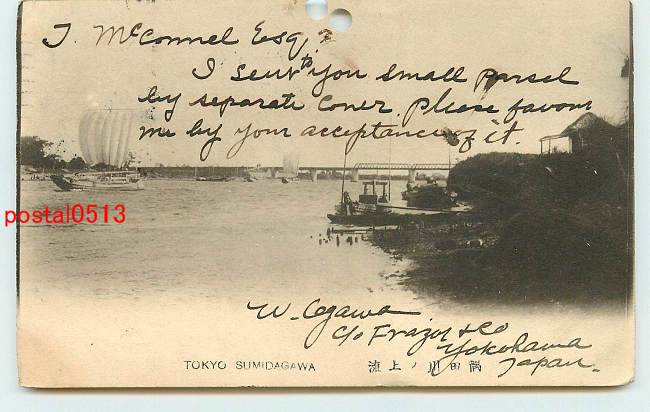 T. McConnel Esq,
I sent to you small parsel
by separate Coner. please favour
me by your acceptance of it.
postal0513
W. Ogawa
c/o Frazor & Co
Yokohama
Japan.
TOKYO SUMIDAGAWA
流上ノ川田隅